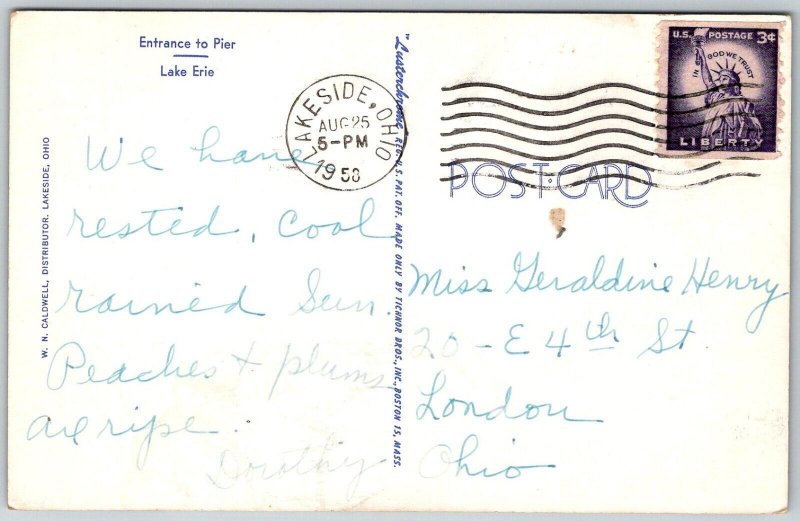 Entrance to Pier
Lake Erie
W. N. CALDWELL, DISTRIBUTOR. LAKESIDE, OHIO
We have
rested, cool
rained Sun.
Peaches + plums
are ripe.
Dorothy
"Lusterchrome" REG. U.S. PAT. OFF. MADE ONLY BY TICHNOR BROS., INC., BOSTON 15, MASS.
LAKESIDE, OHIO
AUG 25
5-PM
1958
U.S. POSTAGE 3¢
IN GOD WE TRUST
LIBERTY
POST CARD
Miss Geraldine Henry
20 - E 4th St.
London
Ohio